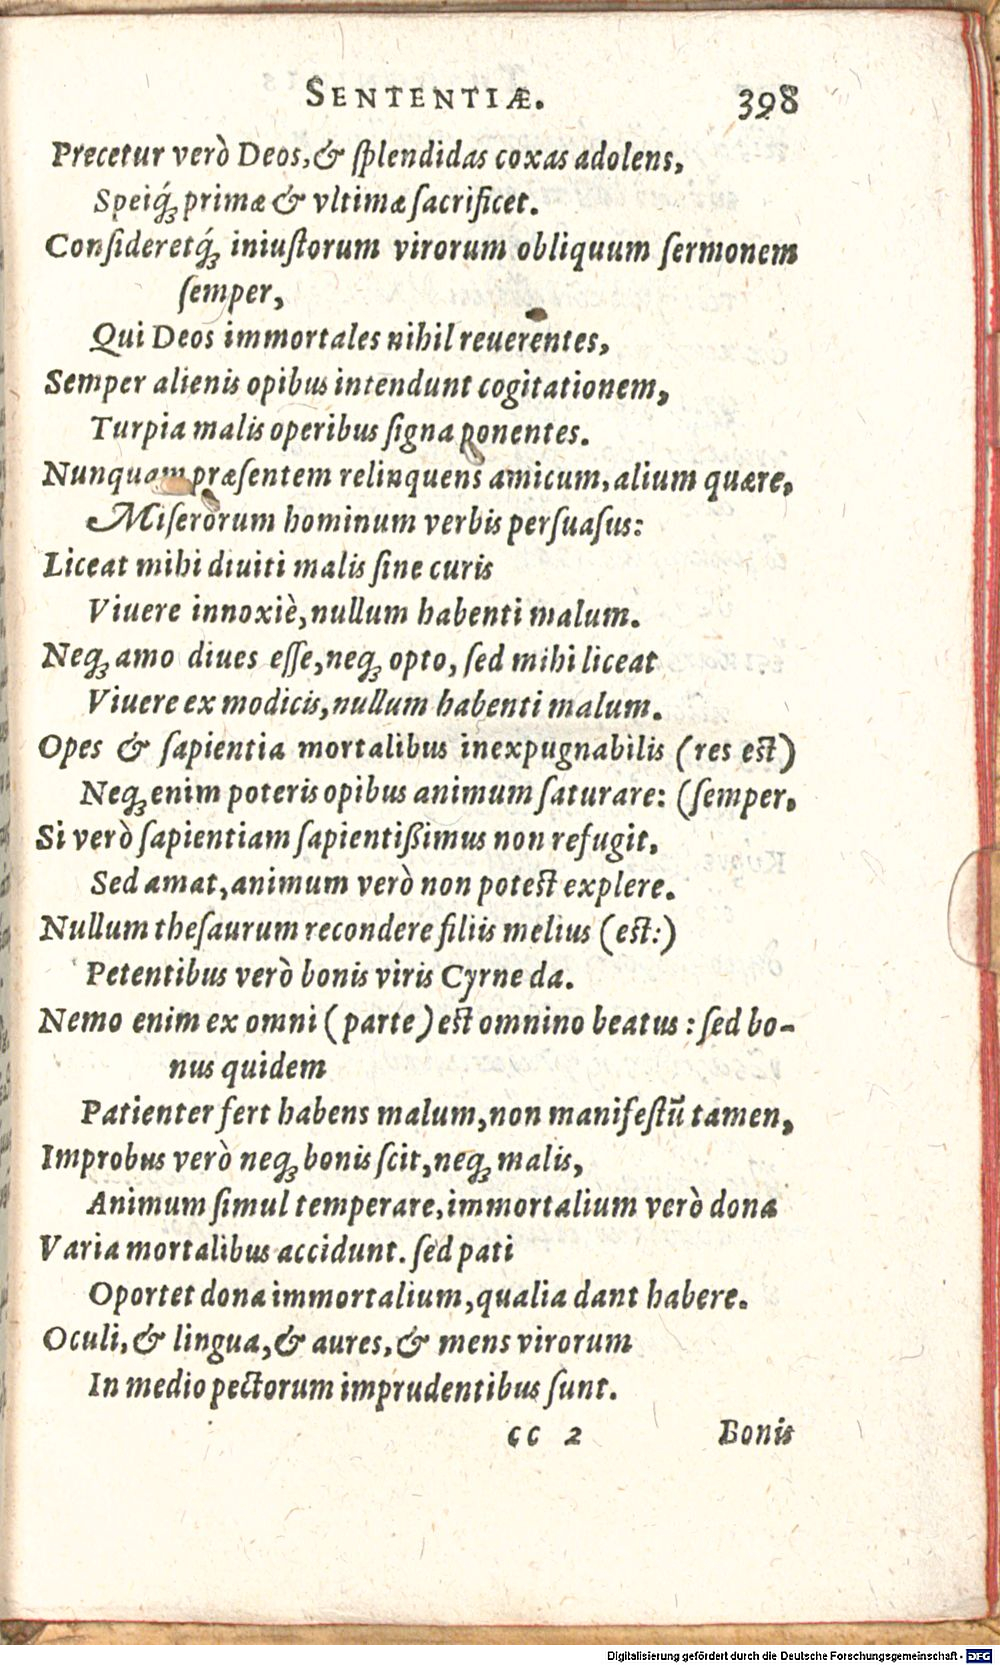 SENTENTIÆ. 398
Precetur verò Deos, & ſplendidas coxas adolens,
Speiq́; primæ & vltimæ ſacrificet.
Conſideretq́; iniuſtorum virorum obliquum ſermonem
ſemper,
Qui Deos immortales nihil reuerentes,
Semper alienis opibus intendunt cogitationem,
Turpia malis operibus ſigna ponentes.
Nunquam præſentem relinquens amicum, alium quære,
Miſerorum hominum verbis perſuaſus:
Liceat mihi diuiti malis ſine curis
Viuere innoxiè, nullum habenti malum.
Neq; amo diues eſſe, neq; opto, ſed mihi liceat
Viuere ex modicis, nullum habenti malum.
Opes & ſapientia mortalibus inexpugnabilis (res eſt)
Neq; enim poteris opibus animum ſaturare: (ſemper,
Si verò ſapientiam ſapientiſſimus non refugit,
Sed amat, animum verò non poteſt explere.
Nullum theſaurum recondere filiis melius (eſt:)
Petentibus verò bonis viris Cyrne da.
Nemo enim ex omni (parte) eſt omnino beatus: ſed bo-
nus quidem
Patienter fert habens malum, non manifeſtũ tamen,
Improbus verò neq; bonis ſcit, neq; malis,
Animum ſimul temperare, immortalium verò dona
Varia mortalibus accidunt. ſed pati
Oportet dona immortalium, qualia dant habere.
Oculi, & lingua, & aures, & mens virorum
In medio pectorum imprudentibus ſunt.
cc 2 Bonis
Digitalisierung gefördert durch die Deutsche Forschungsgemeinschaft - DFG